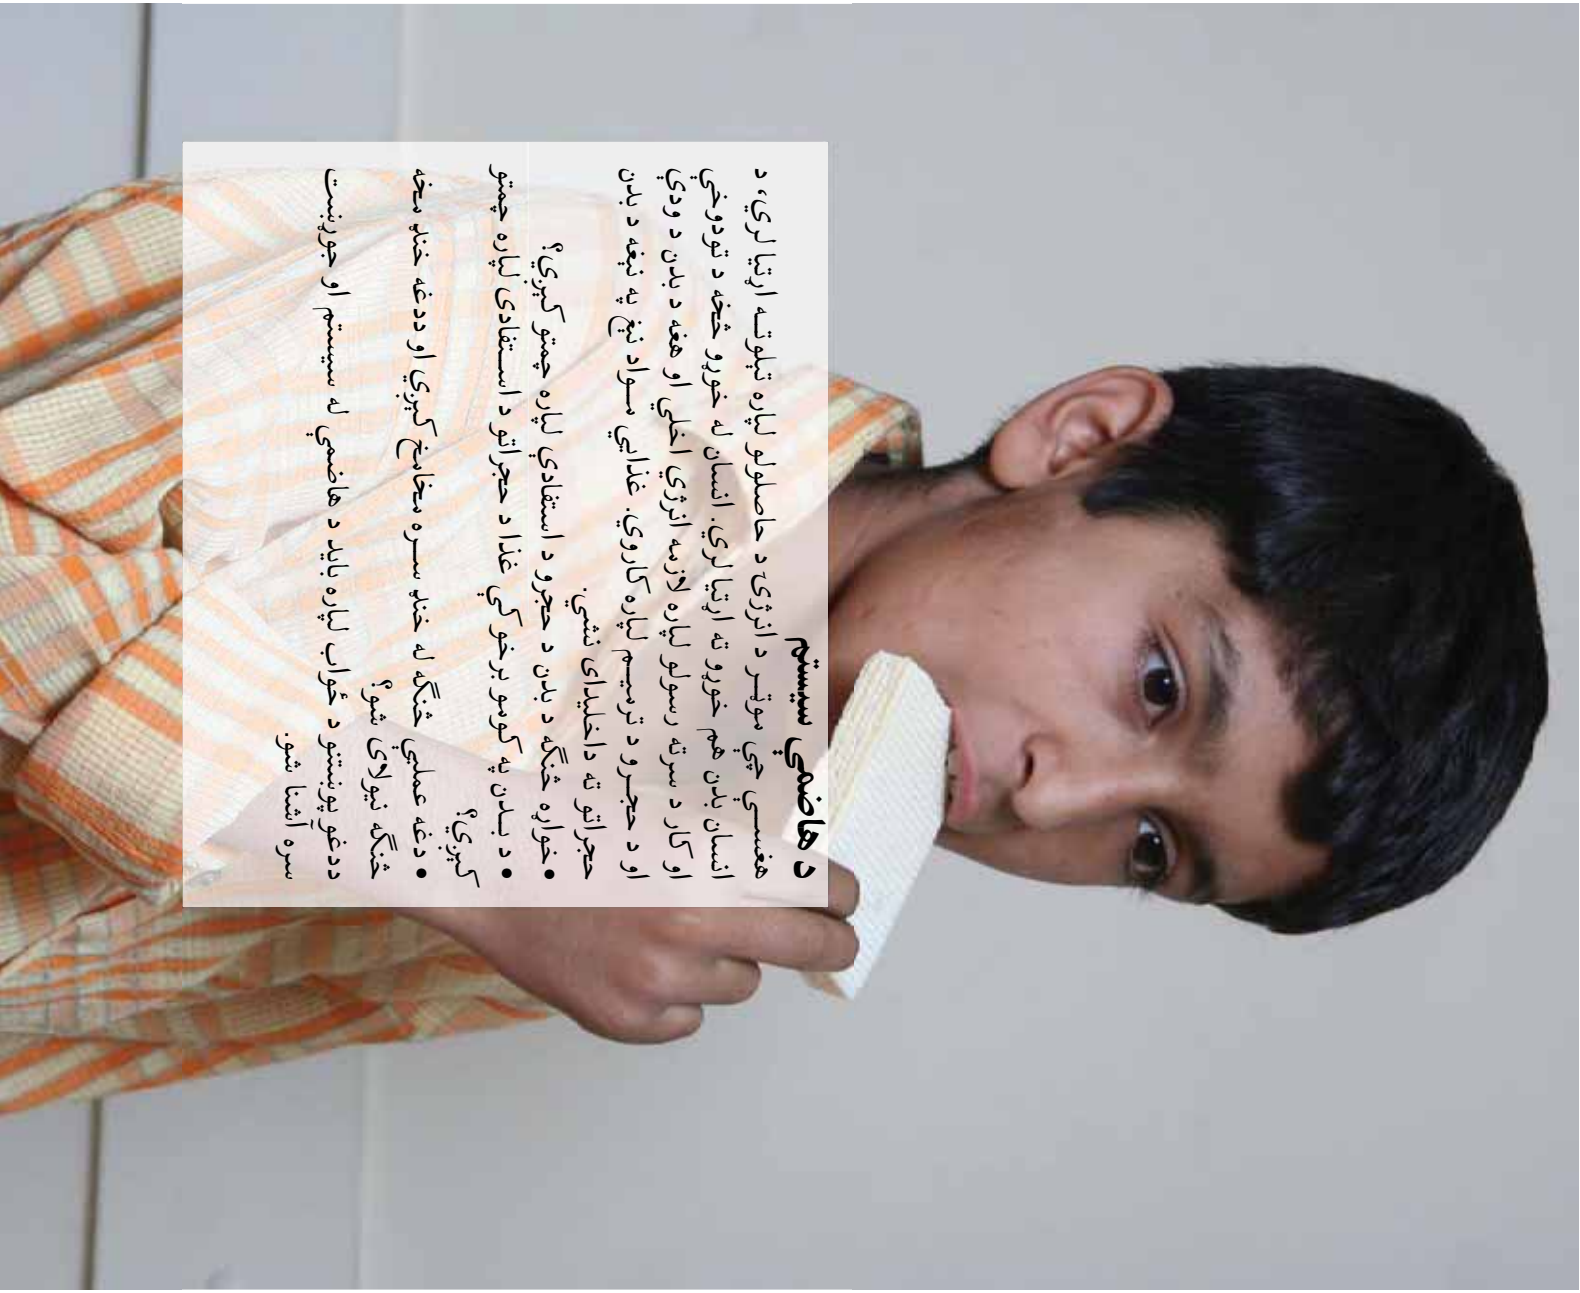 د هاضمې سیستم
هغســې چې موټــر د انرژۍ د حاصلولو لپاره تېلوتــه اړتیا لري، د
انسان بدن هم خوړو ته اړتیا لري. انسان له خوړو څخه د تودوخې
او کار د سرته رسولو لپاره لازمه انرژي اخلي او هغه د بدن د ودې
او د حجــرو د ترمیــم لپاره کاروي. غذایي مــواد نیغ په نیغه د بدن
حجراتو ته داخلیدای نشي.
• خواړه څنګه د بدن د حجرو د استفادې لپاره چمتو کیږي؟
• د بــدن په کومو برخو کې غذا د حجراتو د اســتفادی لپاره چمتو
کیږي؟
• دغه عملیې څنګه له خنډ ســره مخامخ کیږي او ددغه خنډ مخه
څنګه نیولای شو؟
ددغو پوښتنو د ځواب لپاره باید د هاضمې له سیستم او جوړښت
سره آشنا شو.